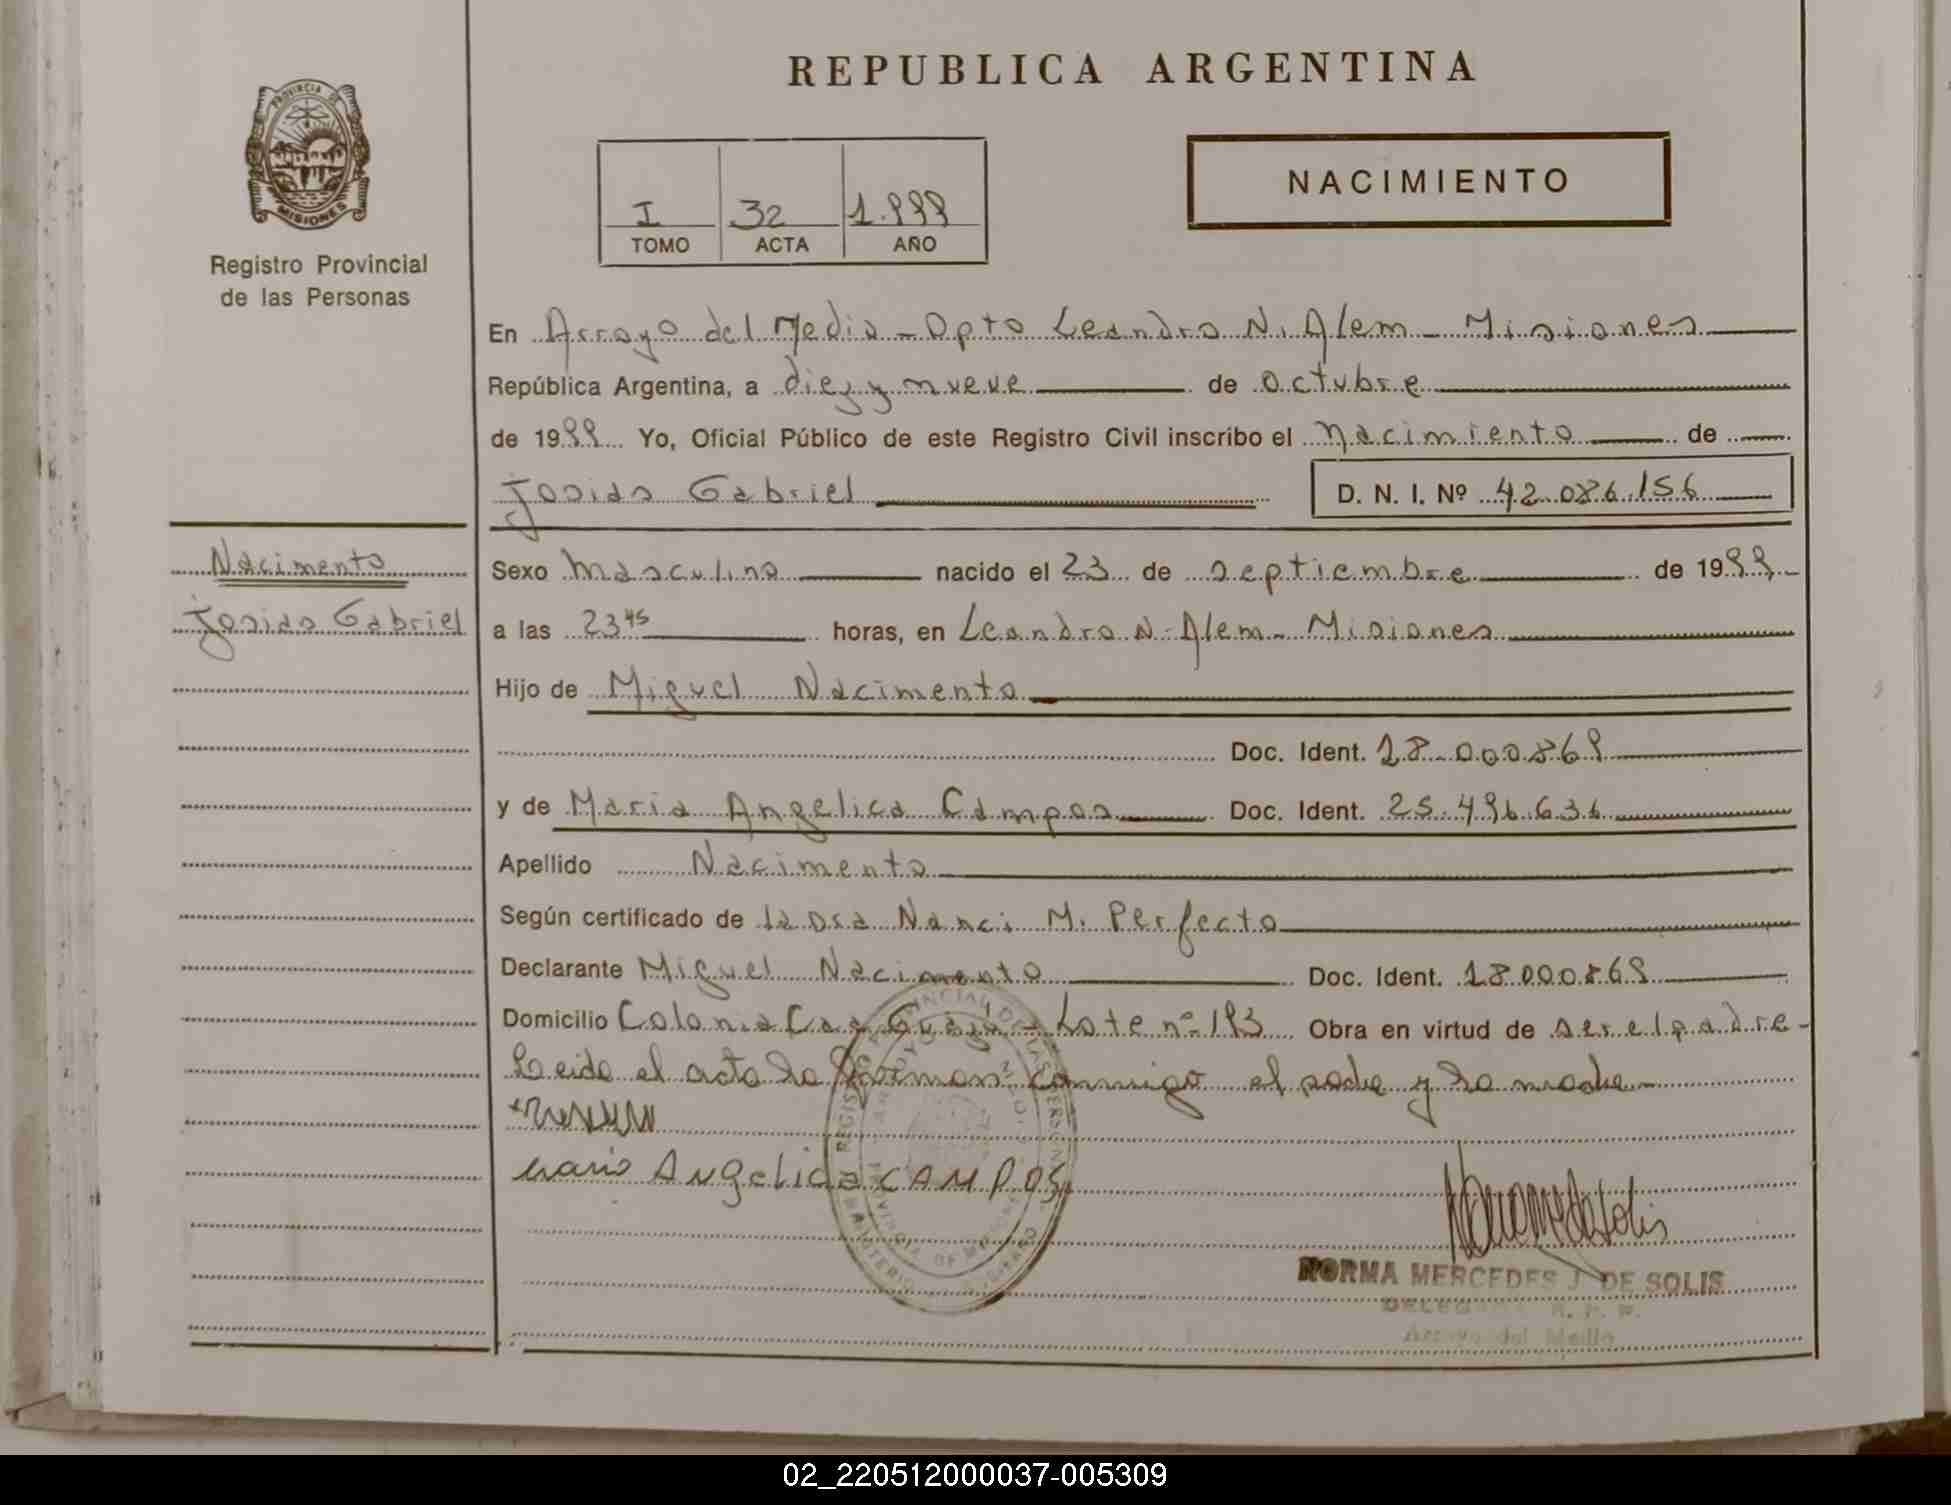 REPUBLICA ARGENTINA
PROVINCIA DE
MISIONES
Registro Provincial
de las Personas
I 32 1.999
TOMO ACTA AÑO
NACIMIENTO
En Arroyo del Medio - Dpto Leandro N. Alem - Misiones
República Argentina, a diez y nueve de octubre
de 1999 Yo, Oficial Público de este Registro Civil inscribo el Nacimiento de
Josias Gabriel D. N. I. Nº 42.086.156
Nacimento
Josias Gabriel
Sexo Masculino nacido el 23 de septiembre de 1999
a las 23 45 horas, en Leandro N. Alem - Misiones
Hijo de Miguel Nacimento
Doc. Ident. 18.000.869
y de Maria Angelica Campos Doc. Ident. 25.496.636
Apellido Nacimento
Según certificado de la Dra Nanci M. Perfecto
Declarante Miguel Nacimento Doc. Ident. 18.000.869
Domicilio Colonia Caa Guazú - Lote nº 193 Obra en virtud de ser el padre -
Leida el acta la firman conmigo el padre y la madre -
Maria Angelica CAMPOS
NORMA MERCEDES J. DE SOLIS
DELEGADA R. P. P.
Arroyo del Medio
02_220512000037-005309